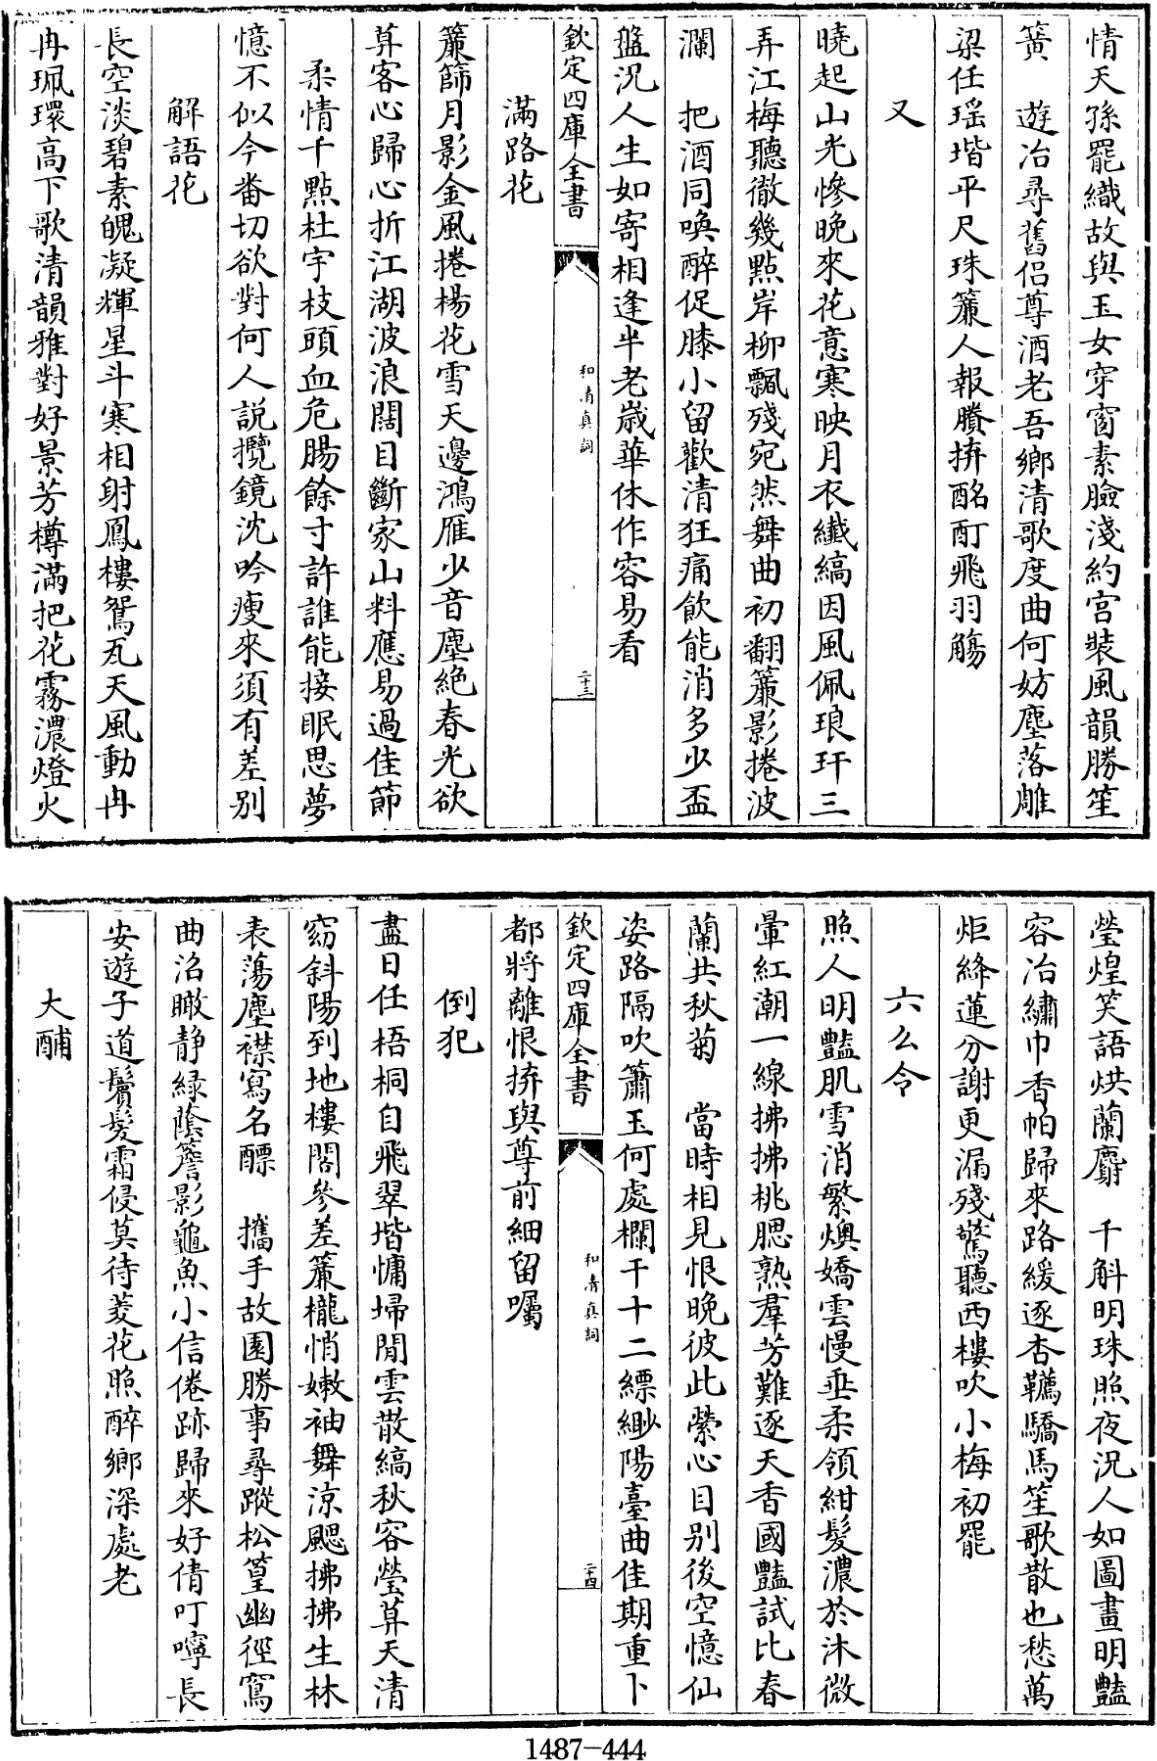 情天孫罷織故與玉女穿窗素臉淺約宮裝風韻勝笙
簧　遊冶尋舊侣尊酒老吾鄉清歌度曲何妨塵落雕
梁任瑶堦平尺珠簾人報賸拚酩酊飛羽觴
又
曉起山光慘晚來花意寒映月衣纖縞因風佩琅玕三
弄江梅聽徹幾點岸柳飄殘宛然舞曲初翻簾影捲波
瀾　把酒同喚醉促膝小留歡清狂痛飲能消多少盃
盤況人生如寄相逢半老歲華休作容易看
欽定四庫全書
和清真詞
二十三
滿路花
簾篩月影金風捲楊花雪天邊鴻雁少音塵絶春光欲
暮客心歸心折江湖波浪闊目斷家山料應易過佳節
柔情千點杜宇枝頭血危腸餘寸許誰能接眠思夢
憶不似今番切欲對何人説攬鏡沈吟瘦來須有差别
解語花
長空淡碧素魄凝輝星斗寒相射鳳樓鴛瓦天風動冉
冉珮環高下歌清韻雅對好景芳樽滿把花霧濃燈火
瑩煌笑語烘蘭麝　千斛明珠照夜況人如圖畫明豔
容冶繡巾香帕歸來路緩逐杏韉驕馬笙歌散也愁萬
炬絳蓮分謝更漏殘驚聽西樓吹小梅初罷
六么令
照人明豔肌雪消繁燠嬌雲慢垂柔領紺髮濃於沐微
暈紅潮一線拂拂桃腮熟羣芳難逐天香國豔試比春
蘭共秋菊　當時相見恨晚彼此縈心目别後空憶仙
姿路隔吹簫玉何處欄干十二縹緲陽臺曲佳期重卜
欽定四庫全書
和清真詞
二十四
都將離恨拚與尊前細留囑
倒犯
盡日任梧桐自飛翠堦慵埽閒雲散縞秋容瑩暮天清
窈斜陽到地樓閣參差簾櫳悄嫩袖舞涼颸拂拂生林
表蕩塵襟寫名醥　攜手故園勝事尋蹤松篁幽徑窎
曲沼瞰静緑蔭簷影龜魚小信倦跡歸來好倩叮嚀長
安遊子道鬢髮霜侵莫待菱花照醉鄉深處老
大酺
1487-444